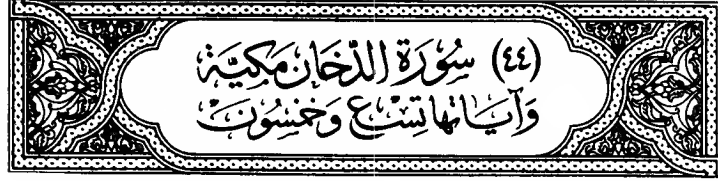 (٤٤) سُورَةُ الدُّخَانِ مَكِّيَّةٌ
وَآيَاتُهَا تِسْعٌ وَخَمْسُونَ